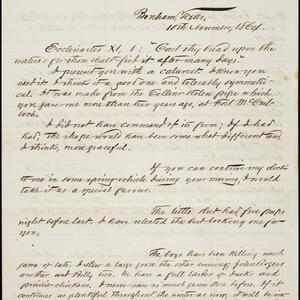 Bonham, Texas,
10th November, 1864.
Ecclesiastes XI, 1: "Cast thy bread upon the
waters: for thou shalt find it after many days."
I present you with a calumet. I know you
need it. I think it a good one and tolerably symmetri-
cal. It was made from the stolen pipe which
you gave me more than two years ago, at Fort McCul-
loch.
I did not have command of its form; If I
had, the shape would have been some what different and,
I think, more graceful.
If you can
to me in some spring vehicle during your moving, I would
take it as a special favour.
The little slut had five pups
night before last. I have selected the best looking one for
you.
The boys have been killing much
game of late. I slew a large goose the other evening; John Rogers
another and Polly two. We have a full larder of ducks and
prairie-chickens. I never saw so much game here before. If it
continues as plentiful throughout the winter as now, it will be